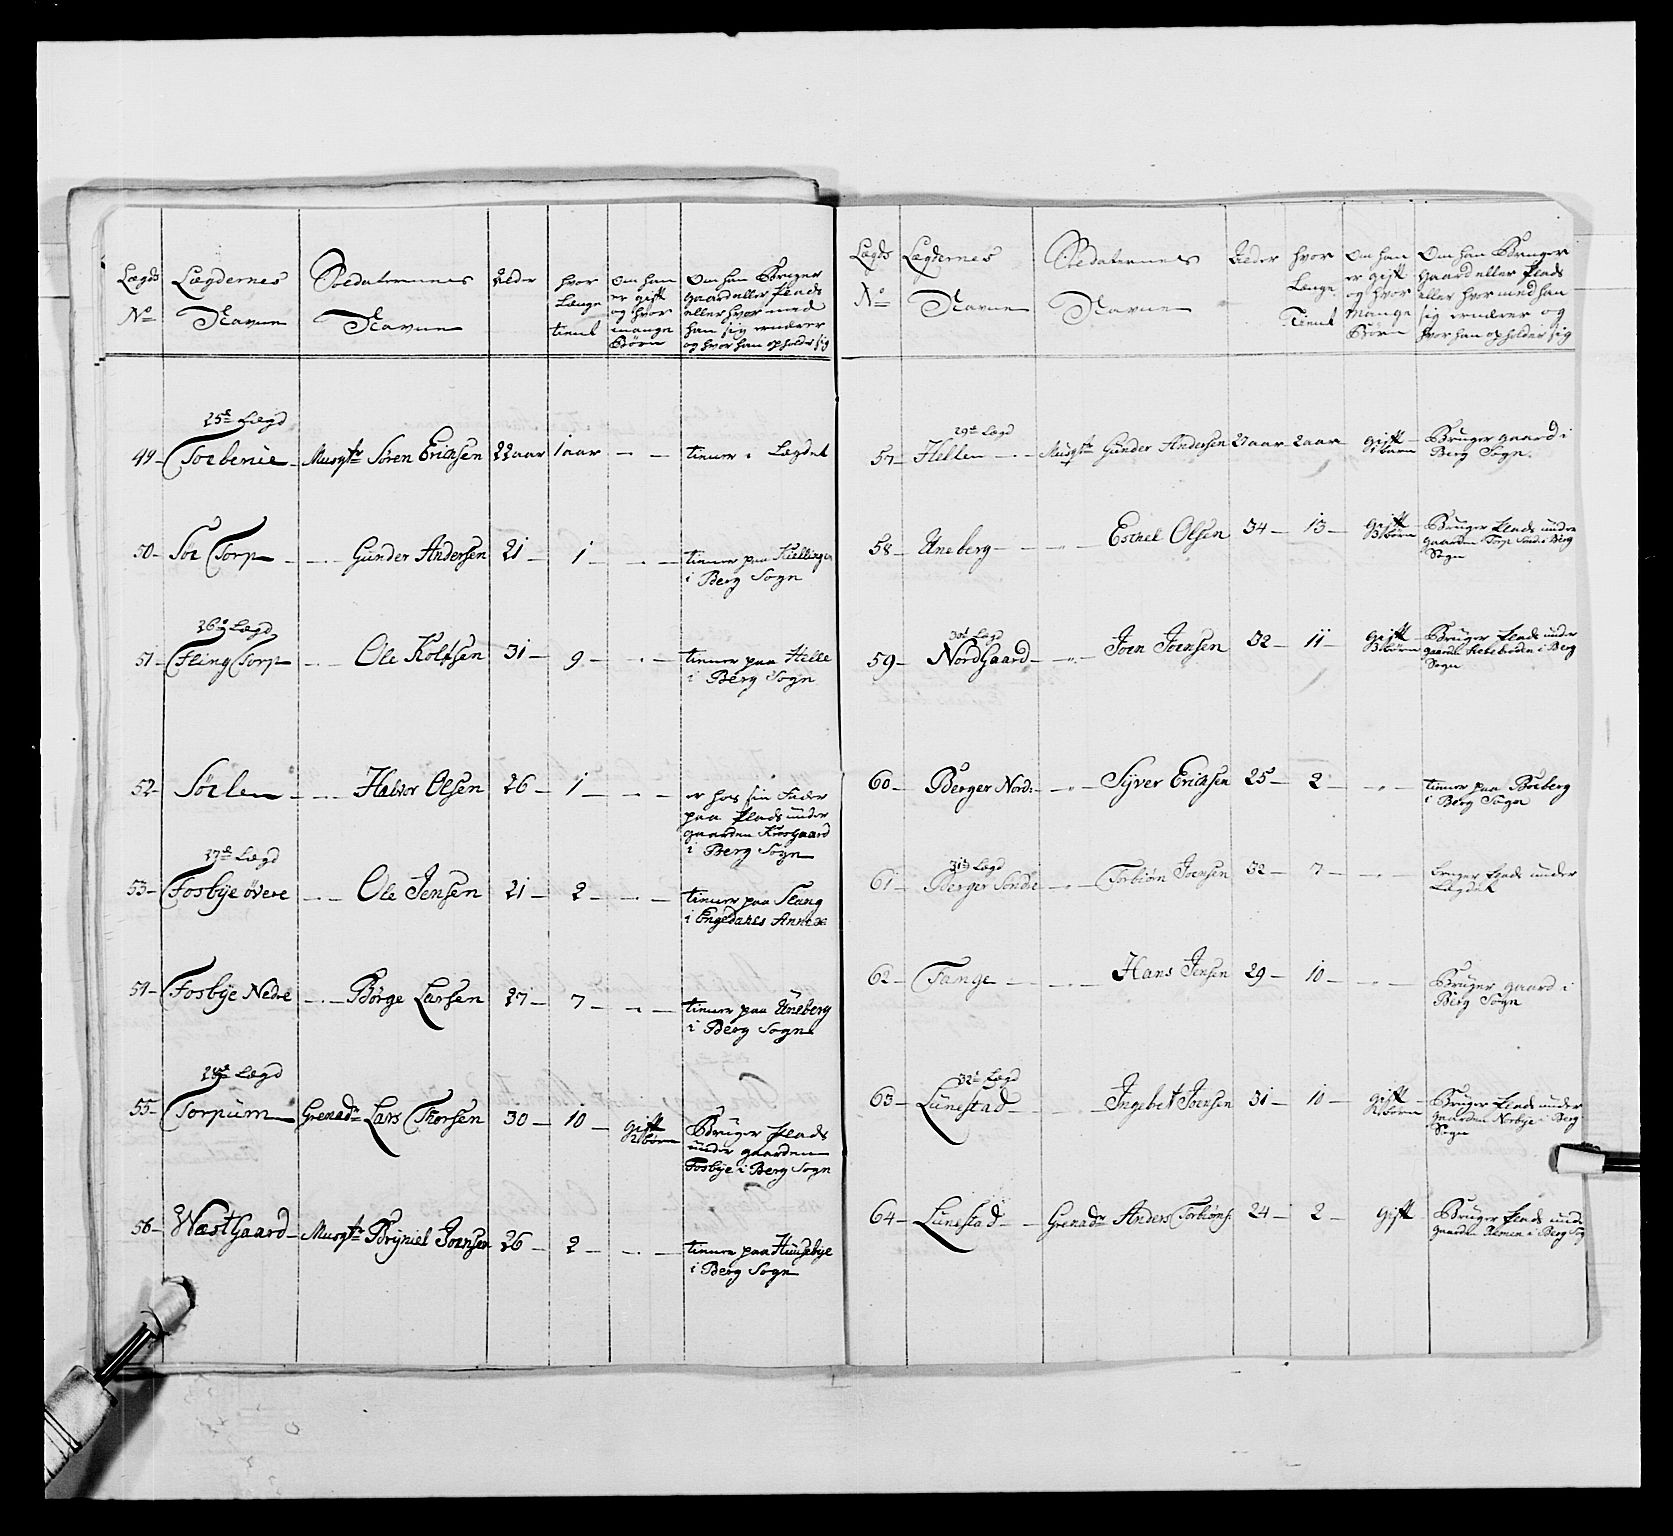 Lægds Lægdernes Soldaternes Alder hvor Om han Om han Bruger
No Navne Navne Længe er gift Gaard eller Plads
tient og hvor eller hvor med
mange han sig ernærer
Børn og hvor han opholder sig
25de Lægd
49 Torbenie Musqtr Søren Erichsen 22 aar 1 aar - - tiener i Lægdet
50 Sör Torp Gunder Andersen 21 1 - - tiener paa Kullinger
i Berg Sogn
26de Lægd
51 Fling Torp Ole Holtsen 31 9 - - tiener paa Helle
i Berg Sogn
52 Sörlen Halvor Olsen 26 1 - - er hos sin Fader
paa Plads under
gaarden Krosgaard
i Berg Sogn
27de Lægd
53 Fosbye övere Ole Jensen 21 2 - - tiener paa Stang
i Engedahls Annex
54 Fosbye Nedre Börge Larsen 27 7 - - tiener paa Uneberg
i Berg Sogn
28de Lægd
55 Torpum Grenadr Lars Thorsen 30 10 Gift Bruger Plads
2 börn under gaarden
Fosbye i Berg Sogn
56 Wæstgaard Musqtr Bryniel Joensen 26 2 - - tiener paa Huusebye
i Berg Sogn
Lægds Lægdernes Soldaternes Alder hvor Om han Om han Bruger
No Navne Navne Længe er gift Gaard eller Plads
Tient og hvor eller hvor med han
Mange sig ernærer og
Börn hvor han opholder sig
29de Lægd
57 Hellen Musqtr Gunder Andersen 27 aar 2 aar gift Bruger gaard i
1 barn Berg Sogn.
58 Uneberg Eschel Olsen 34 13 gift Bruger Plads under
3 börn gaarden Torp Söndre i Berg
Sogn
30te Lægd
59 Nordgaard Joen Joensen 32 11 Gift Bruger Plads under
3 börn gaarden i Berg
Sogn
60 Berger Nord: Syver Erichsen 25 2 - - tiener paa Boeberg
i Berg Sogn
31te Lægd
61 Berger Söndre Torbiörn Joensen 32 7 - - bruger Plads under
Lægdet
62 Tange Hans Jensen 29 10 - - Bruger gaard i
Berg Sogn
32te Lægd
63 Lunestad Ingebet Joensen 31 10 Gift Bruger Plads under
2 börn gaarden Norbye i Berg
Sogn
64 Lunestad Grenadr Anders Torbiöns. 24 2 Gift Bruger Plads unde
gaarden Remen i Berg Sog